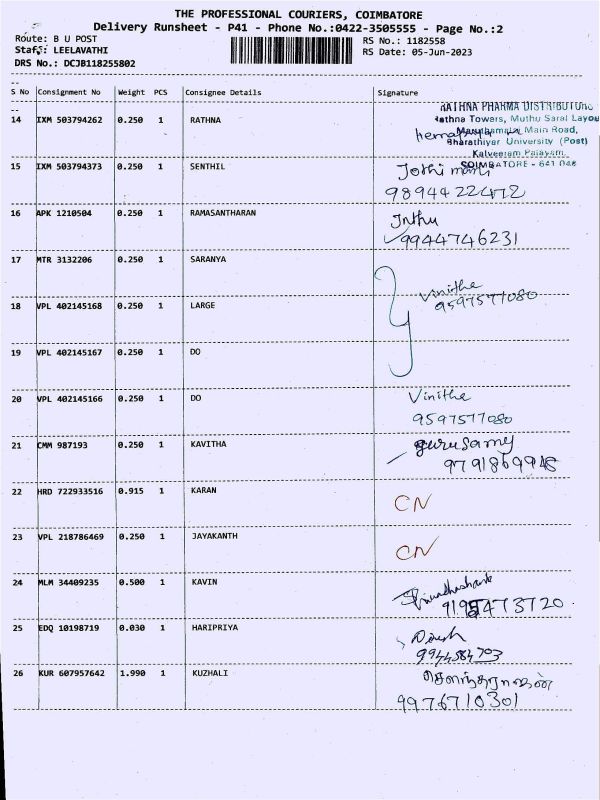 THE PROFESSIONAL COURIERS, COIMBATORE
Delivery Runsheet - P41 - Phone No.:0422-3505555 - Page No.:2
Route: B U POST
RS No.: 1182558
Staff: LEELAVATHI
RS Date: 05-Jun-2023
DRS No.: DCJB118255802
S No Consignment No Weight PCS Consignee Details Signature
RATHNA PHARMA DISTRIBUTORS
14 IXM 503794262 0.250 1 RATHNA
Rathna Towers, Muthu Saral Layou
Main Road,
Bharathiyar University (Post)
Kalveeram Palayam,
COIMBATORE - 641 046
15 IXM 503794373 0.250 1 SENTHIL Jothi mani
9894422472
16 APK 1210504 0.250 1 RAMASANTHARAN Inthu
9944746231
17 MTR 3132206 0.250 1 SARANYA
Vinitha
9597577080
18 VPL 402145168 0.250 1 LARGE
19 VPL 402145167 0.250 1 DO
20 VPL 402145166 0.250 1 DO Vinitha
9597577080
21 CMM 987193 0.250 1 KAVITHA gurusamy
9791869948
22 HRD 722933516 0.915 1 KARAN CN
23 VPL 218786469 0.250 1 JAYAKANTH CN
24 MLM 34409235 0.500 1 KAVIN
25 EDQ 10198719 0.030 1 HARIPRIYA Dinesh
9944584703
26 KUR 607957642 1.990 1 KUZHALI சௌந்தரராஜன்
9976710301